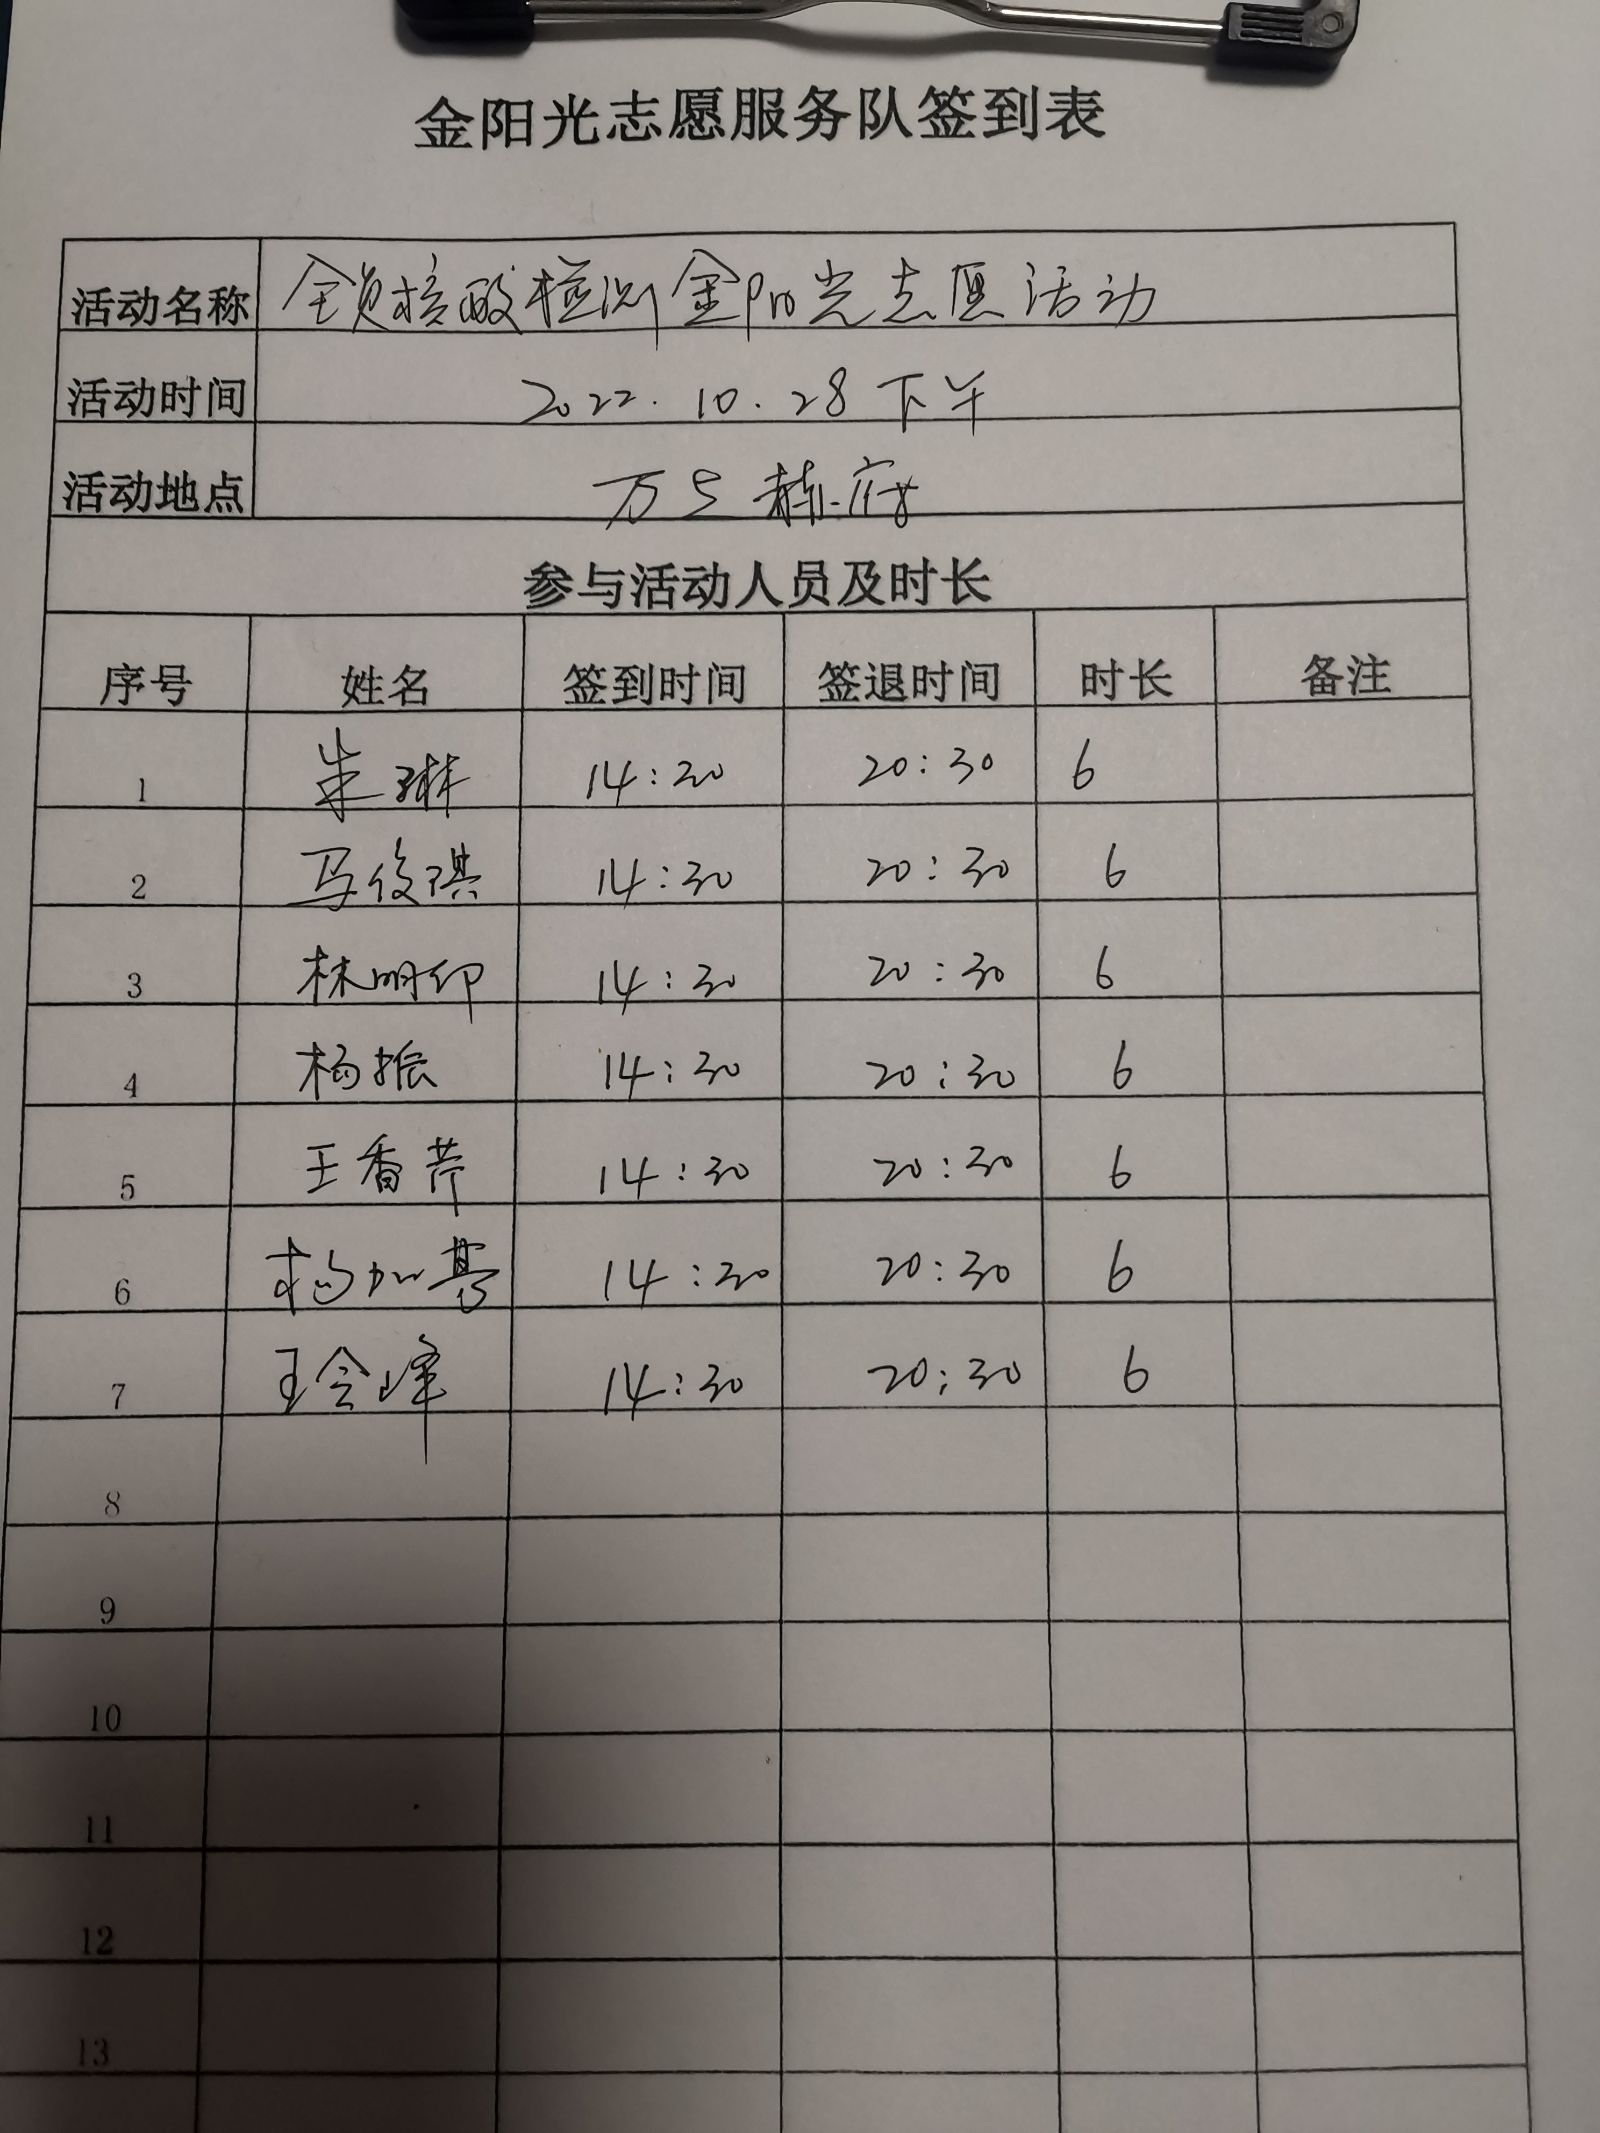 金阳光志愿服务队签到表
活动名称 全员核酸检测金阳光志愿活动
活动时间 2022.10.28下午
活动地点 万
参与活动人员及时长
序号 姓名 签到时间 签退时间 时长 备注
1 朱琳 14:30 20:30 6
2 马俊琪 14:30 20:30 6
3 林明印 14:30 20:30 6
4 杨振 14:30 20:30 6
5 王香芹 14:30 20:30 6
6 杨加 14:30 20:30 6
7 王会峰 14:30 20:30 6
8
9
10
11
12
13